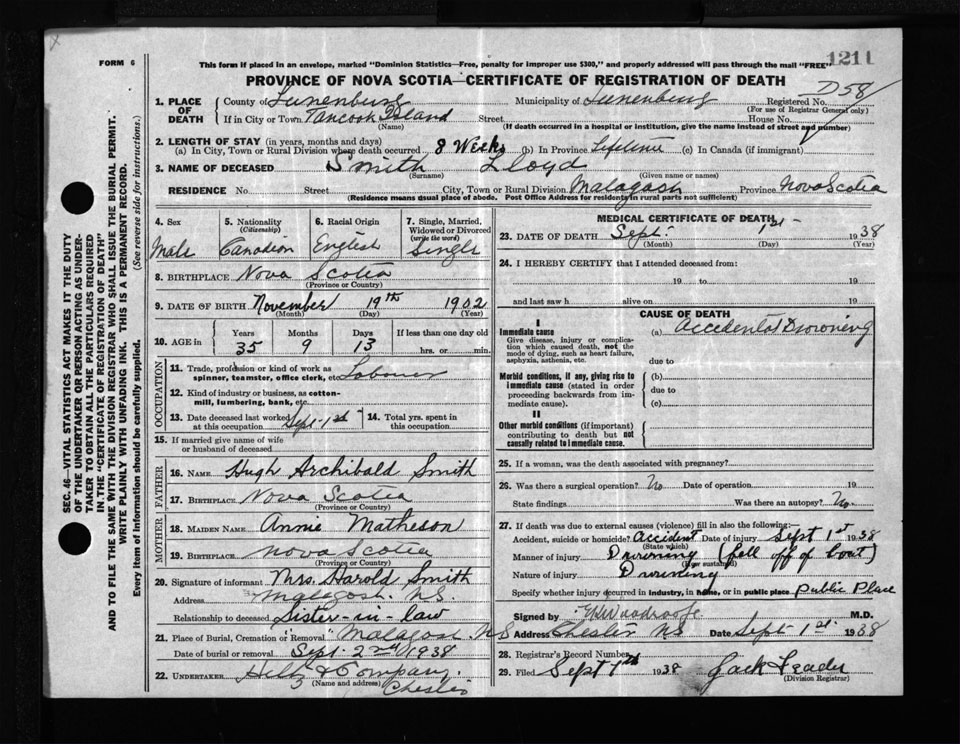 1211
FORM 6
This form if placed in an envelope, marked "Dominion Statistics—Free, penalty for improper use $300," and properly addressed will pass through the mail "FREE"
PROVINCE OF NOVA SCOTIA—CERTIFICATE OF REGISTRATION OF DEATH
D58
1. PLACE OF DEATH
County of Lunenburg Municipality of Lunenburg Registered No.
(For use of Registrar General only)
If in City or Town Tancook Island Street House No.
(Name) (If death occurred in a hospital or institution, give the name instead of street and number)
2. LENGTH OF STAY (in years, months and days)
(a) In City, Town or Rural Division where death occurred 8 Weeks (b) In Province Lifetime (c) In Canada (if immigrant)
3. NAME OF DECEASED Smith Lloyd
(Surname) (Given name or names)
RESIDENCE No. Street City, Town or Rural Division Malagash Province Nova Scotia
(Residence means usual place of abode. Post Office Address for residents in rural parts not sufficient)
4. Sex Male
5. Nationality (Citizenship) Canadian
6. Racial Origin English
7. Single, Married, Widowed or Divorced (write the word) Single
8. BIRTHPLACE Nova Scotia
(Province or Country)
9. DATE OF BIRTH November 19th 1902
(Month) (Day) (Year)
10. AGE in Years Months Days If less than one day old
35 9 13 hrs. or min.
OCCUPATION
11. Trade, profession or kind of work as spinner, teamster, office clerk, etc. Labourer
12. Kind of industry or business, as cotton-mill, lumbering, bank, etc.
13. Date deceased last worked at this occupation Sept. 1st
14. Total yrs. spent in this occupation
15. If married give name of wife or husband of deceased
FATHER
16. NAME Hugh Archibald Smith
17. BIRTHPLACE Nova Scotia
(Province or Country)
MOTHER
18. MAIDEN NAME Annie Matheson
19. BIRTHPLACE Nova Scotia
(Province or Country)
20. Signature of informant Mrs. Harold Smith
Address Malagash N.S.
Relationship to deceased Sister-in-law
21. Place of Burial, Cremation or Removal Malagash N S
Date of burial or removal Sept. 2nd 1938
22. UNDERTAKER & Company
(Name and address) Chester
MEDICAL CERTIFICATE OF DEATH
23. DATE OF DEATH Sept. 1st 1938
(Month) (Day) (Year)
24. I HEREBY CERTIFY that I attended deceased from:
19 to 19
and last saw h alive on 19
CAUSE OF DEATH
I
Immediate cause (a) Accidental Drowning
Give disease, injury or complication which caused death, not the mode of dying, such as heart failure, asphyxia, asthenia, etc.
due to
Morbid conditions, if any, giving rise to immediate cause (stated in order proceeding backwards from immediate cause).
(b)
due to
(c)
II
Other morbid conditions (if important) contributing to death but not causally related to immediate cause.
25. If a woman, was the death associated with pregnancy?
26. Was there a surgical operation? No Date of operation 19
State findings Was there an autopsy? No
27. If death was due to external causes (violence) fill in also the following:—
Accident, suicide or homicide? Accident Date of injury Sept 1st 1938
(State which)
Manner of injury Drowning (fell off of boat)
(How sustained)
Nature of injury Drowning
Specify whether injury occurred in industry, in home, or in public place Public Place
Signed by M.D.
Address Chester NS Date Sept 1st 1938
28. Registrar's Record Number
29. Filed Sept 1st 1938 Jack Leader
(Division Registrar)
SEC. 46—VITAL STATISTICS ACT MAKES IT THE DUTY
OF THE UNDERTAKER OR PERSON ACTING AS UNDER-
TAKER TO OBTAIN ALL THE PARTICULARS REQUIRED
IN THE "CERTIFICATE OF REGISTRATION OF DEATH"
AND TO FILE THE SAME WITH THE DIVISION REGISTRAR WHO SHALL ISSUE THE BURIAL PERMIT.
WRITE PLAINLY WITH UNFADING INK. THIS IS A PERMANENT RECORD.
Every item of information should be carefully supplied. (See reverse side for instructions.)